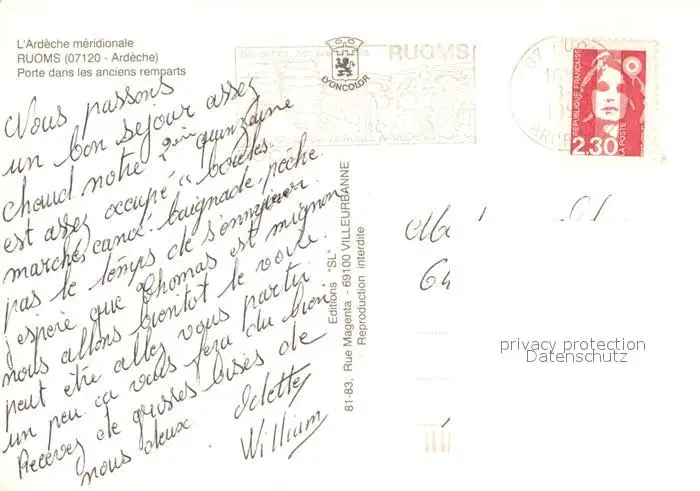 L'Ardèche méridionale
RUOMS (07120 - Ardèche)
Porte dans les anciens remparts
Nous passons
un bon sejour assez
chaud notre 2eme quinzaine
est assez occupé "boules
marchés canoë baignade pêche
pas le temps de s'ennuyer
j'espere que Thomas est mignon
nous allons bientôt le voir.
peut être allez vous partir
un peu. ça vous fera du bien
Recevez de grosses bises de
nous deux. Odette
William
LYONCOLOR
RUOMS
Editions "SL"
81-83, Rue Magenta - 69100 VILLEURBANNE
Reproduction interdite
REPUBLIQUE FRANÇAISE
LA POSTE
2,30
07 RUO
64
privacy protection
Datenschutz